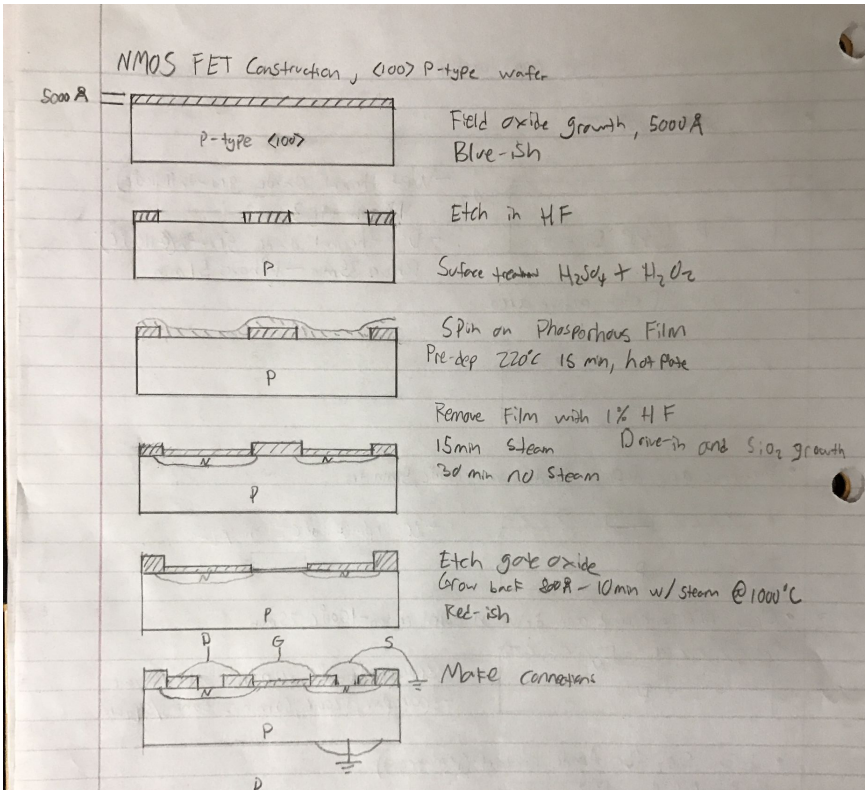 NMOS FET Construction, <100> P-type wafer
5000 Å
P-type <100>
Field oxide growth, 5000 Å
Blue-ish
Etch in HF
P
Suface H2SO4 + H2O2
Spin on Phosporhous Film
Pre-dep 220°C 15 min, hot plate
P
Remove Film with 1% HF
15min Steam Drive-in and SiO2 growth
30 min no Steam
N N
P
Etch gate oxide
Grow back 800Å - 10min w/ Steam @ 1000°C
Red-ish
N N
P
D G S
Make connections
N N
P
D